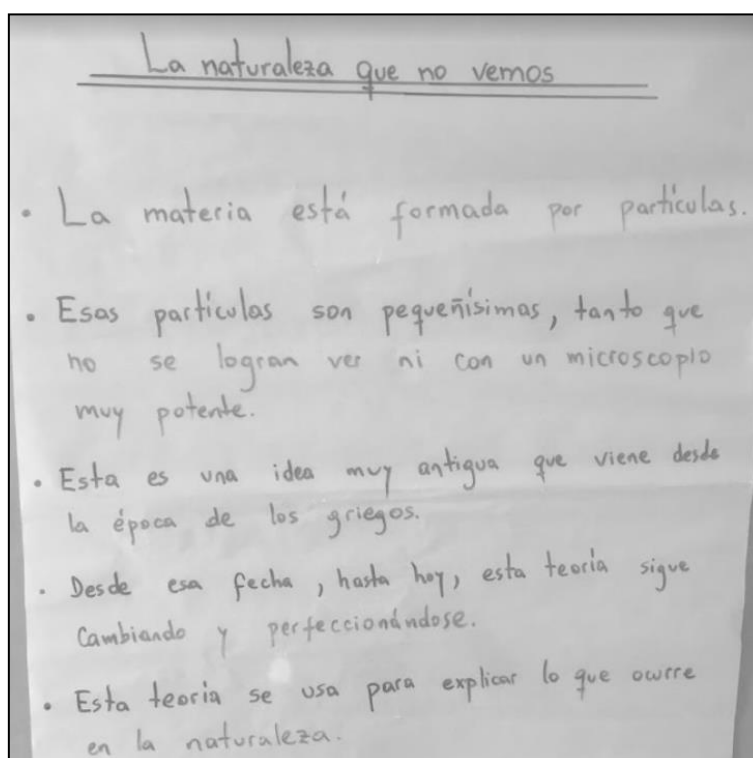 La naturaleza que no vemos
• La materia está formada por partículas.
• Esas partículas son pequeñísimas, tanto que
no se logran ver ni con un microscopio
muy potente.
• Esta es una idea muy antigua que viene desde
la época de los griegos.
• Desde esa fecha, hasta hoy, esta teoría sigue
Cambiando y perfeccionándose.
• Esta teoría se usa para explicar lo que ocurre
en la naturaleza.